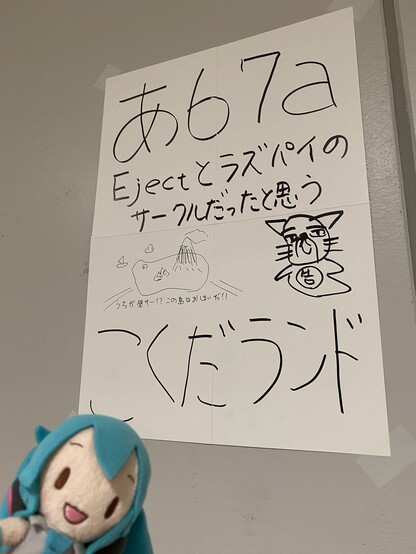 あ67a
Ejectとラズパイの
サークルだったと思う
告
うちが壁サー!? この島はおしまいだ!!
こくだランド